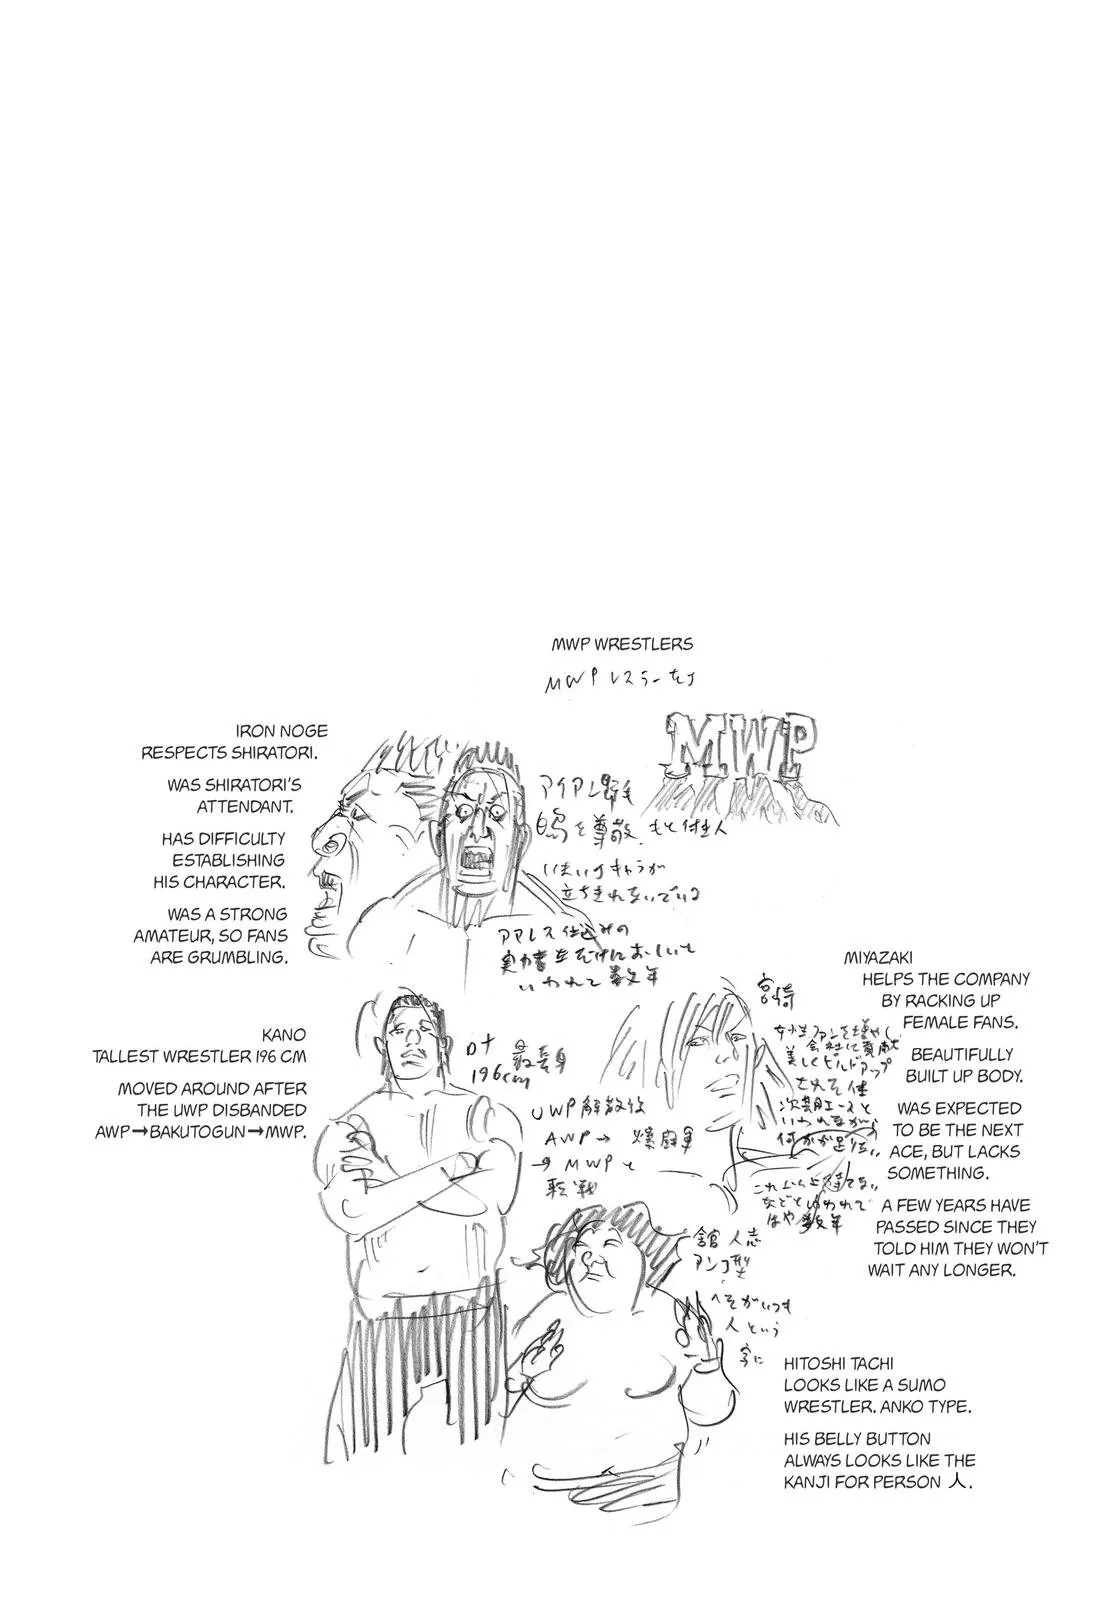 MWP WRESTLERS
MWP レスラーたち
MWP
IRON NOGE
RESPECTS SHIRATORI.
WAS SHIRATORI'S
ATTENDANT.
HAS DIFFICULTY
ESTABLISHING
HIS CHARACTER.
WAS A STRONG
AMATEUR, SO FANS
ARE GRUMBLING.
アイアン野毛
白鳥を尊敬 もと付き人
いまいちキャラが
立ちきれないでいる
アマレス仕込みの
実力者だけにおしいと
いわれて数年
KANO
TALLEST WRESTLER 196 CM
MOVED AROUND AFTER
THE UWP DISBANDED
AWP→BAKUTOGUN→MWP.
最長身
196cm
UWP解散後
AWP→ 爆闘軍
→MWPと
転戦
MIYAZAKI
HELPS THE COMPANY
BY RACKING UP
FEMALE FANS.
BEAUTIFULLY
BUILT UP BODY.
WAS EXPECTED
TO BE THE NEXT
ACE, BUT LACKS
SOMETHING.
A FEW YEARS HAVE
PASSED SINCE THEY
TOLD HIM THEY WON'T
WAIT ANY LONGER.
宮崎
女性ファンを増やし
会社に貢献
美しくビルドアップ
された体
次期エースと
いわれながら
何かが足りない
これ以上待てない
などといわれて
はや数年
舘 人志
アンコ型
へそがいつも
人という
字に
HITOSHI TACHI
LOOKS LIKE A SUMO
WRESTLER. ANKO TYPE.
HIS BELLY BUTTON
ALWAYS LOOKS LIKE THE
KANJI FOR PERSON 人.